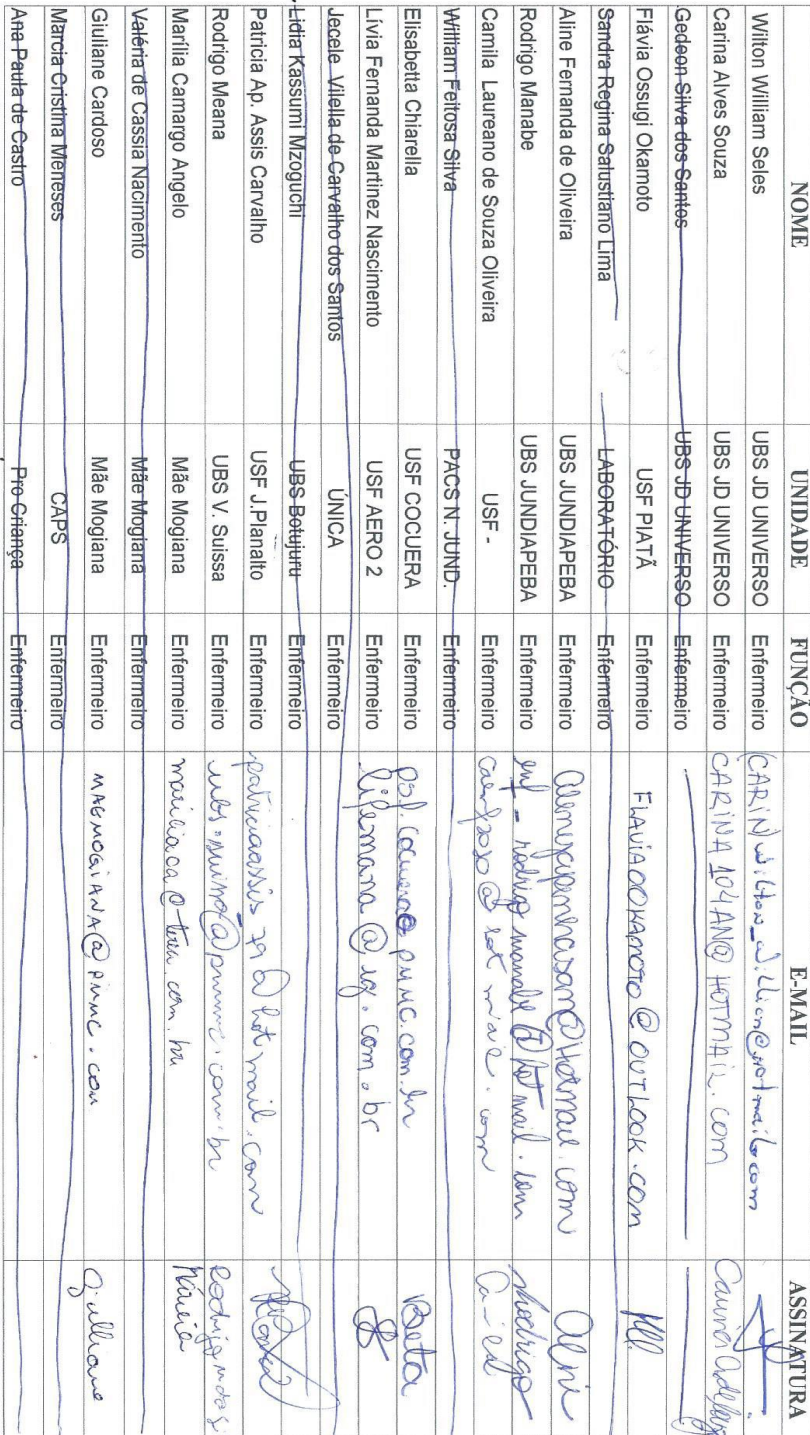 NOME UNIDADE FUNÇÃO E-MAIL ASSINATURA
Wilton William Seles UBS JD UNIVERSO Enfermeiro
Carina Alves Souza UBS JD UNIVERSO Enfermeiro CARINA104AN@HOTMAIL.COM
Gedeon Silva dos Santos UBS JD UNIVERSO Enfermeiro
Flávia Ossugi Okamoto USF PIATÃ Enfermeiro FLAVIAOOKAMOTO@OUTLOOK.COM
Sandra Regina Salustiano Lima LABORATÓRIO Enfermeiro
Aline Fernanda de Oliveira UBS JUNDIAPEBA Enfermeiro
Rodrigo Manabe UBS JUNDIAPEBA Enfermeiro enf_rodrigo manabe@hotmail.com Rodrigo
Camila Laureano de Souza Oliveira USF - Enfermeiro
William Feitosa Silva PACS N. JUND. Enfermeiro
Elisabetta Chiarella USF COCUERA Enfermeiro psf.cocuera@pmmc.com.br Beta
Lívia Fernanda Martinez Nascimento USF AERO 2 Enfermeiro lifemana@ig.com.br
Jecele Vilella de Carvalho dos Santos ÚNICA Enfermeiro
Lidia Kassumi Mzoguchi UBS Botujuru Enfermeiro
Patricia Ap. Assis Carvalho USF J.Planalto Enfermeiro patriciaassis79@hotmail.com
Rodrigo Meana UBS V. Suissa Enfermeiro ubs.suissa@pmmc.com.br
Marília Camargo Angelo Mãe Mogiana Enfermeiro mariliaca@terra.com.br
Valéria de Cassia Nacimento Mãe Mogiana Enfermeiro
Giuliane Cardoso Mãe Mogiana Enfermeiro MAEMOGIANA@PMMC.COM Giulliane
Marcia Cristina Meneses CAPS Enfermeiro
Ana Paula de Castro Pro Criança Enfermeiro